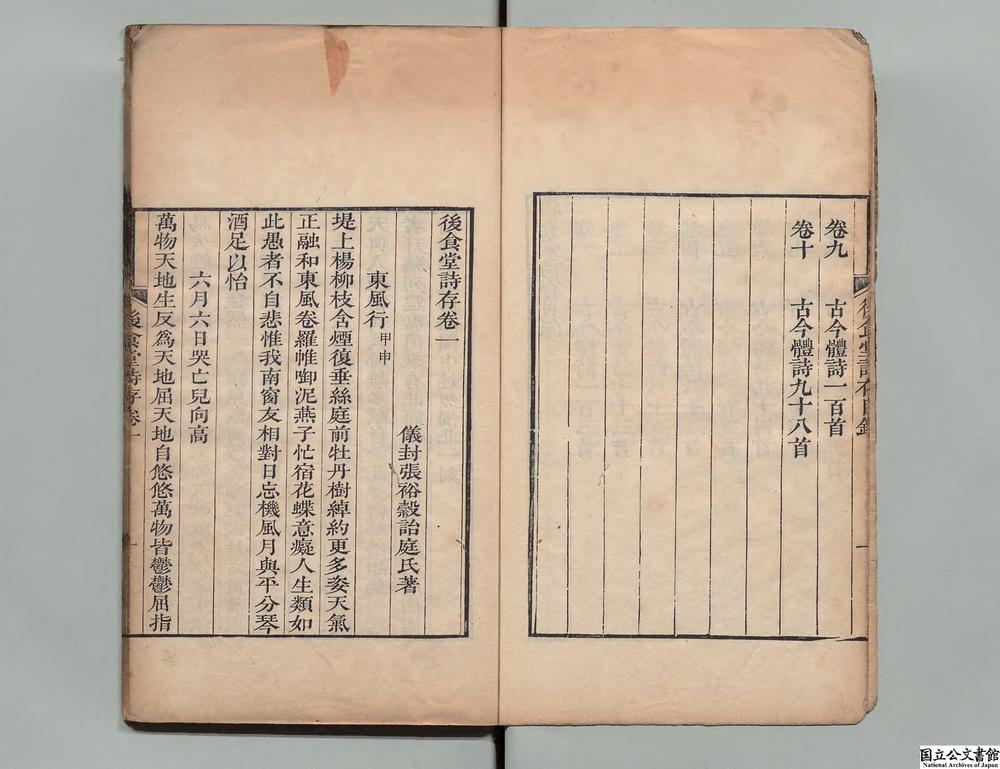 卷九　古今體詩一百首
卷十　古今體詩九十八首
後食堂詩存目錄
一
後食堂詩存卷一
儀封張裕穀詒庭氏著
東風行甲申
堤上楊柳枝含煙復垂絲庭前牡丹樹綽約更多姿天氣
正融和東風卷羅帷啣泥燕子忙宿花蝶意癡人生類如
此愚者不自悲惟我南窗友相對日忘機風月與平分琴
酒足以怡
六月六日哭亡兒向高
萬物天地生反爲天地屈天地自悠悠萬物皆鬱鬱屈指
後食堂詩存卷一
一
国立公文書館
National Archives of Japan